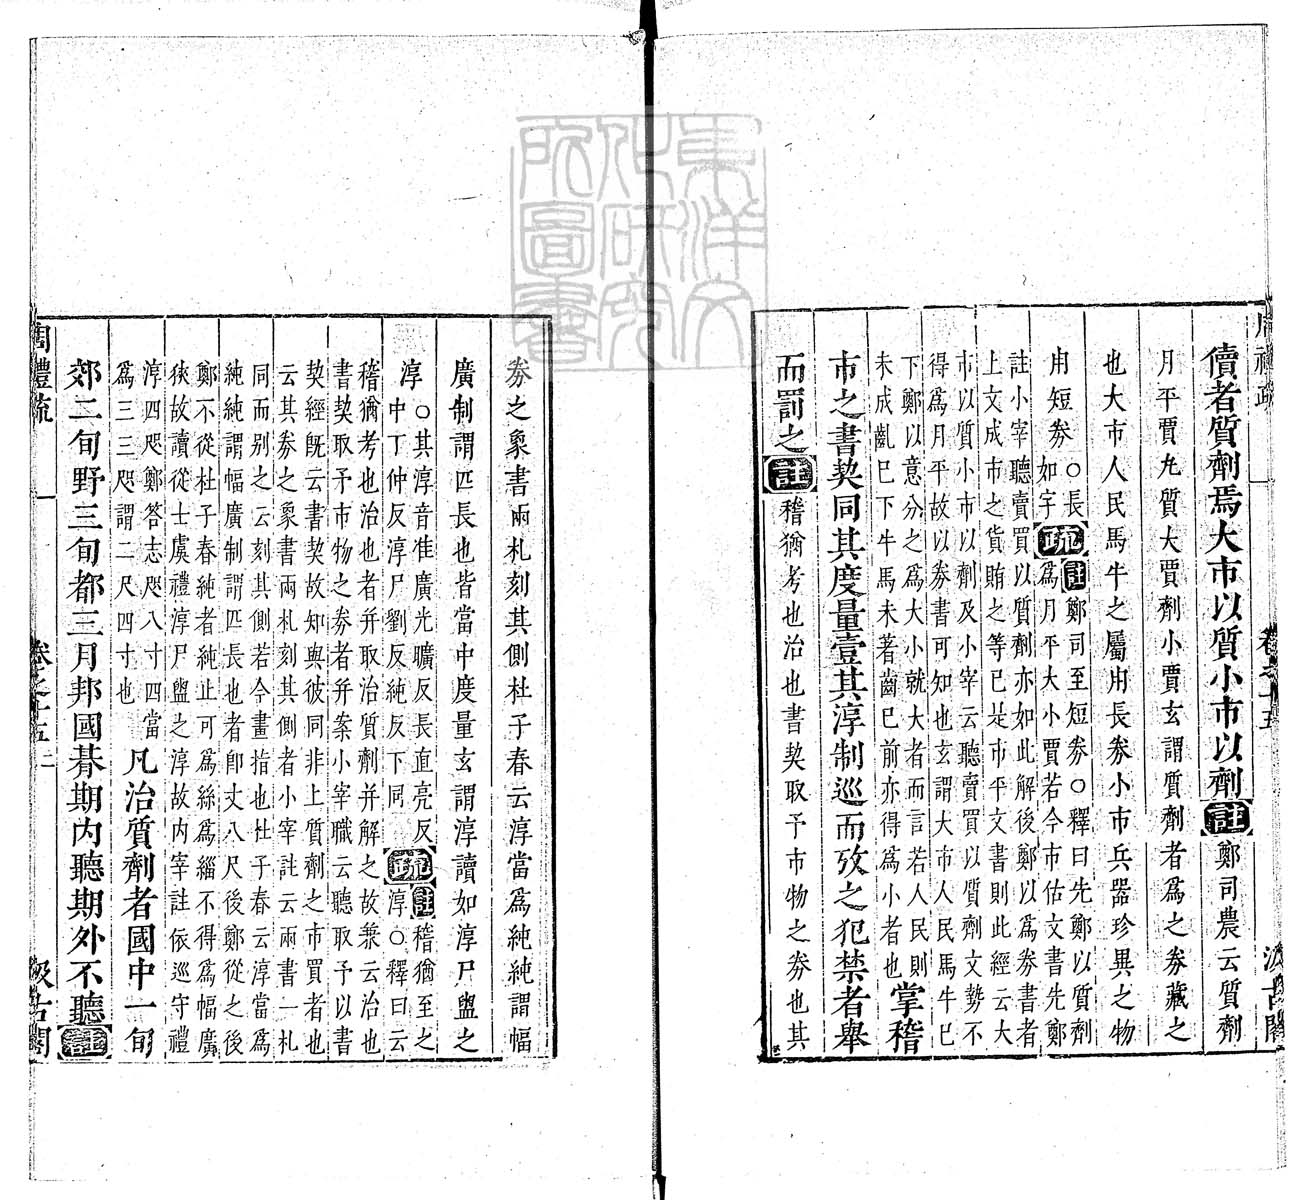 儥者質劑焉大市以質小市以劑註鄭司農云質劑
月平賈也質大賈劑小賈玄謂質劑者爲之券藏之
也大市人民馬牛之屬用長券小市兵器珍異之物
用短券○長
如字疏註鄭司至短券○釋曰先鄭以質劑
爲月平大小賈若今市估文書先鄭
註小宰聽賣買以質劑亦如此解後鄭以爲券書者
上文成市之貨賄之等已是市平文書則此經云大
市以質小市以劑及小宰云聽賣買以質劑文勢不
得爲月平故以券書可知也玄謂大市人民馬牛已
下鄭以意分之爲大小就大者而言若人民則
未成齔已下牛馬未著齒已前亦得爲小者也掌稽
市之書契同其度量壹其淳制巡而攷之犯禁者舉
而罰之註稽猶考也治也書契取予市物之券也其
券之象書兩札刻其側杜子春云淳當爲純純謂幅
廣制謂匹長也皆當中度量玄謂淳讀如淳尸盥之
淳○其淳音准廣光曠反長直亮反
中丁仲反淳尸劉反純反下同疏註稽猶至之
淳○釋曰云
稽猶考也治也者幷取治質劑幷解之故兼云治也
書契取予市物之券者幷案小宰職云聽取予以書
契經旣云書契故知與彼同非上質劑之市買者也
云其券之象書兩札刻其側者小宰註云兩書一札
同而別之云刻其側若今畫指也杜子春云淳當爲
純純謂幅廣制謂匹長也者卽丈八尺後鄭從之後
鄭不從杜子春純者純止可爲絲爲緇不得爲幅廣
狹故讀從士虞禮淳尸盥之淳故內宰註依巡守禮
淳四咫鄭答志咫八寸四當
爲三三咫謂二尺四寸也凡治質劑者國中一旬
郊二旬野三旬都三月邦國朞期內聽期外不聽註
周禮疏
卷之十五
二
汲古閣
東洋文化研究所圖書